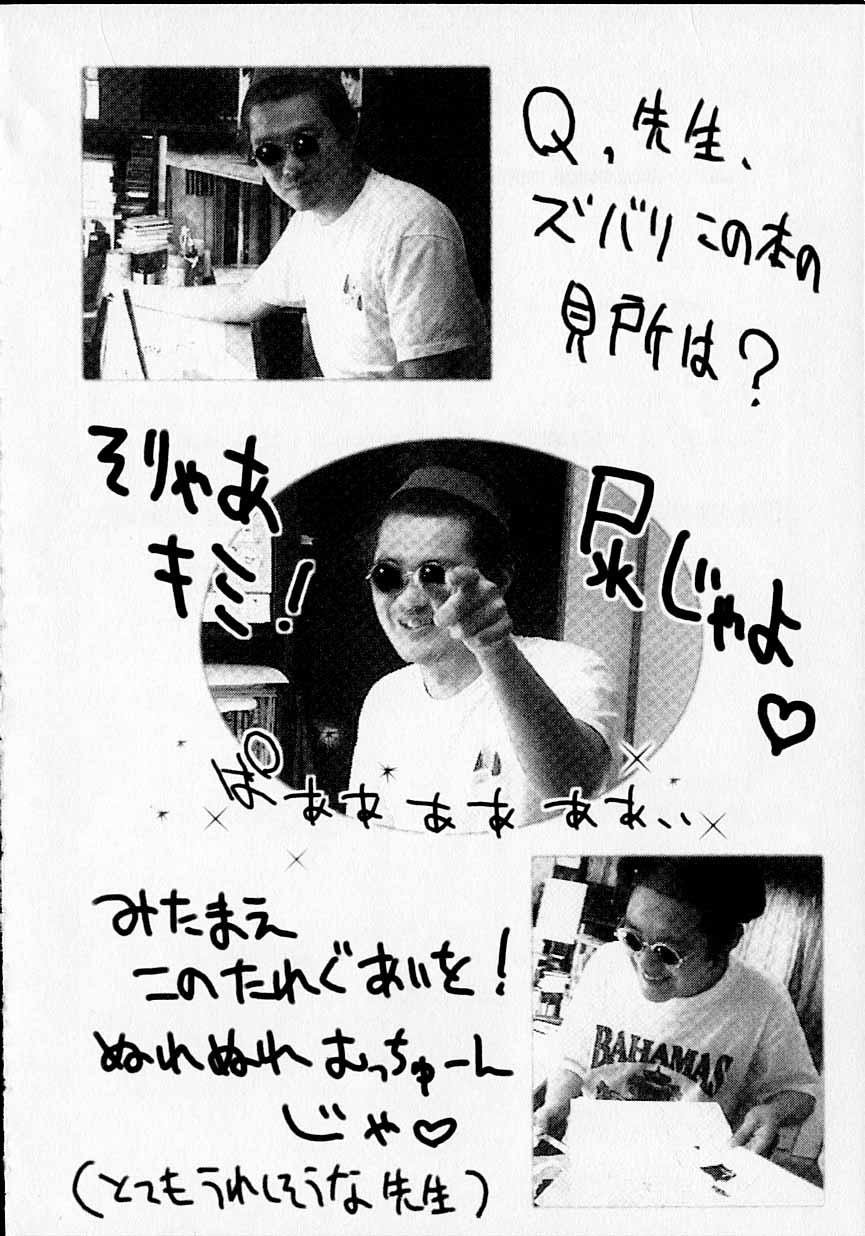 Q、先生、
ズバリこの本の
見所は?
そりゃあ
キミ!
尿じゃよ
♡
ぱぁぁぁぁぁぁ、、
みたまえ
このたれぐあいを!
ぬれぬれむっちゅーん
じゃ♡
(とてもうれしそうな先生)
BAHAMAS